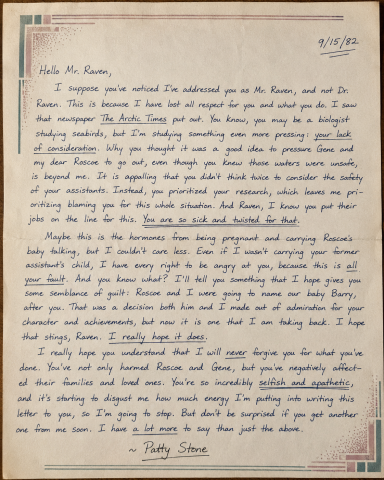 9/15/82
Hello Mr. Raven,
I suppose you've noticed I've addressed you as Mr. Raven, and not Dr.
Raven. This is because I have lost all respect for you and what you do. I saw
that newspaper The Arctic Times put out. You know, you may be a biologist
studying seabirds, but I'm studying something even more pressing: your lack
of consideration. Why you thought it was a good idea to pressure Gene and
my dear Roscoe to go out, even though you knew those waters were unsafe,
is beyond me. It is appalling that you didn't think twice to consider the safety
of your assistants. Instead, you prioritized your research, which leaves me pri-
oritizing blaming you for this whole situation. And Raven, I know you put their
jobs on the line for this. You are so sick and twisted for that.
Maybe this is the hormones from being pregnant and carrying Roscoe's
baby talking, but I couldn't care less. Even if I wasn't carrying your former
assistant's child, I have every right to be angry at you, because this is all
your fault. And you know what? I'll tell you something that I hope gives you
some semblance of guilt: Roscoe and I were going to name our baby Barry,
after you. That was a decision both him and I made out of admiration for your
character and achievements, but now it is one that I am taking back. I hope
that stings, Raven. I really hope it does.
I really hope you understand that I will never forgive you for what you've
done. You've not only harmed Roscoe and Gene, but you've negatively affect-
ed their families and loved ones. You're so incredibly selfish and apathetic,
and it's starting to disgust me how much energy I'm putting into writing this
letter to you, so I'm going to stop. But don't be surprised if you get another
one from me soon. I have a lot more to say than just the above.
~ Patty Stone